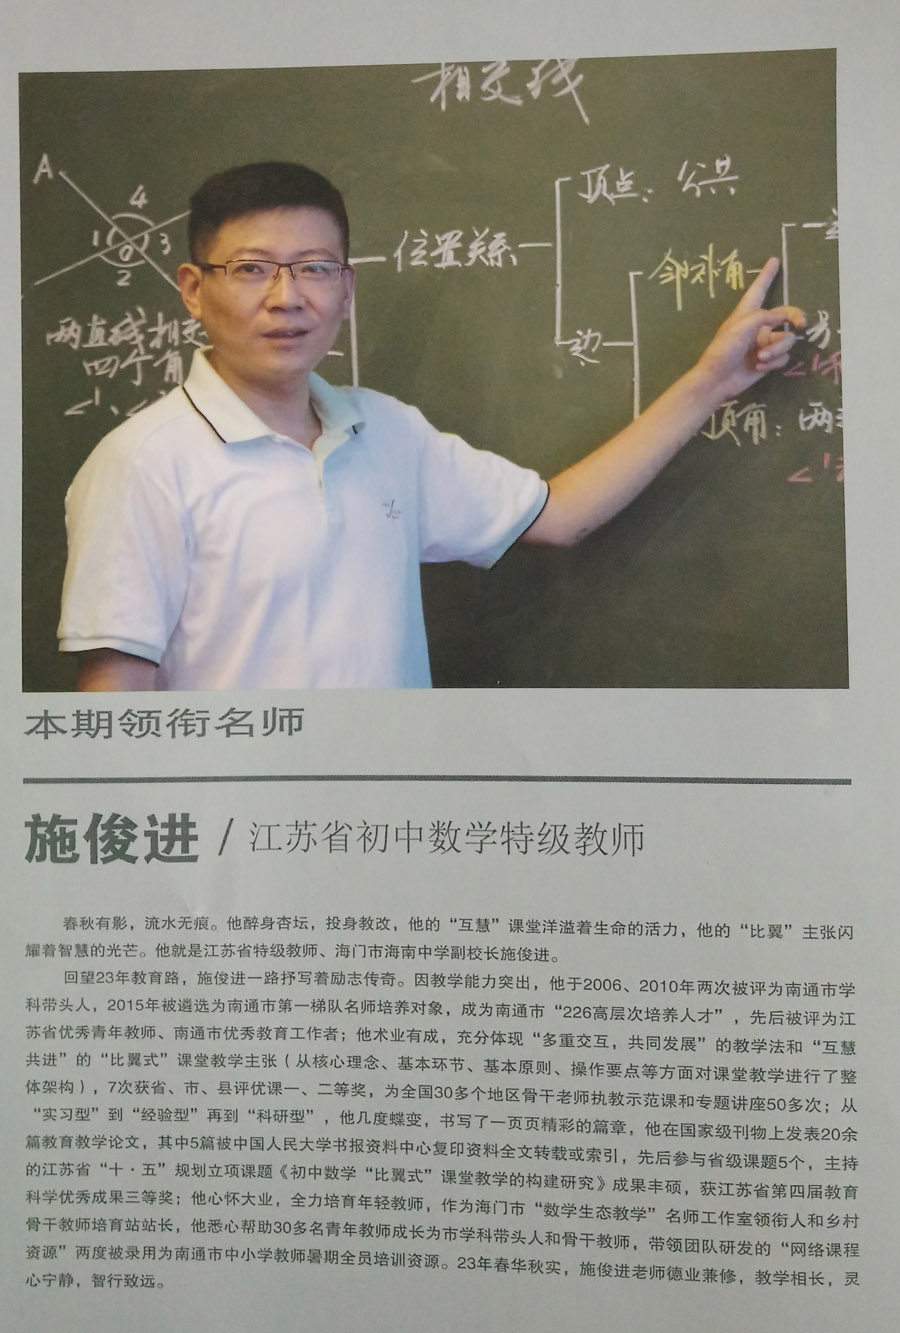 相交线
A
4
1
3
2
两直线相交
四个角
位置关系
顶点：公共
边
邻补角
顶角：两
本期领衔名师
施俊进 / 江苏省初中数学特级教师
春秋有影，流水无痕。他醉身杏坛，投身教改，他的“互慧”课堂洋溢着生命的活力，他的“比翼”主张闪
耀着智慧的光芒。他就是江苏省特级教师、海门市海南中学副校长施俊进。
回望23年教育路，施俊进一路抒写着励志传奇。因教学能力突出，他于2006、2010年两次被评为南通市学
科带头人，2015年被遴选为南通市第一梯队名师培养对象，成为南通市“226高层次培养人才”，先后被评为江
苏省优秀青年教师、南通市优秀教育工作者；他术业有成，充分体现“多重交互，共同发展”的教学法和“互慧
共进”的“比翼式”课堂教学主张（从核心理念、基本环节、基本原则、操作要点等方面对课堂教学进行了整
体架构），7次获省、市、县评优课一、二等奖，为全国30多个地区骨干老师执教示范课和专题讲座50多次；从
“实习型”到“经验型”再到“科研型”，他几度蝶变，书写了一页页精彩的篇章，他在国家级刊物上发表20余
篇教育教学论文，其中5篇被中国人民大学书报资料中心复印资料全文转载或索引，先后参与省级课题5个，主持
的江苏省“十·五”规划立项课题《初中数学“比翼式”课堂教学的构建研究》成果丰硕，获江苏省第四届教育
科学优秀成果三等奖；他心怀大业，全力培育年轻教师，作为海门市“数学生态教学”名师工作室领衔人和乡村
骨干教师培育站站长，他悉心帮助30多名青年教师成长为市学科带头人和骨干教师，带领团队研发的“网络课程
资源”两度被录用为南通市中小学教师暑期全员培训资源。23年春华秋实，施俊进老师德业兼修，教学相长，灵
心宁静，智行致远。